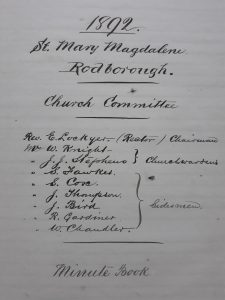 1892.
St. Mary Magdalene
Rodborough.
Church Committee
Rev. E. Lockyer. (Rector) Chairman
Mr W. Knight
" J. J. Stephens } Churchwardens
" S. Fawkes.
" S. Cove.
" J. Thompson.
" J. Bird } Sidesmen.
" R. Gardiner
" W. Chandler.
Minute Book